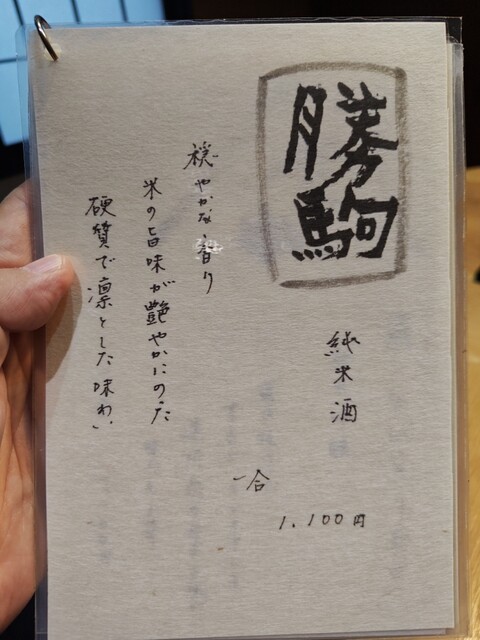 勝駒
純米酒
一合
1,100円
穏やかな香り
米の旨味が艶やかにのた
硬質で凛とした味わい